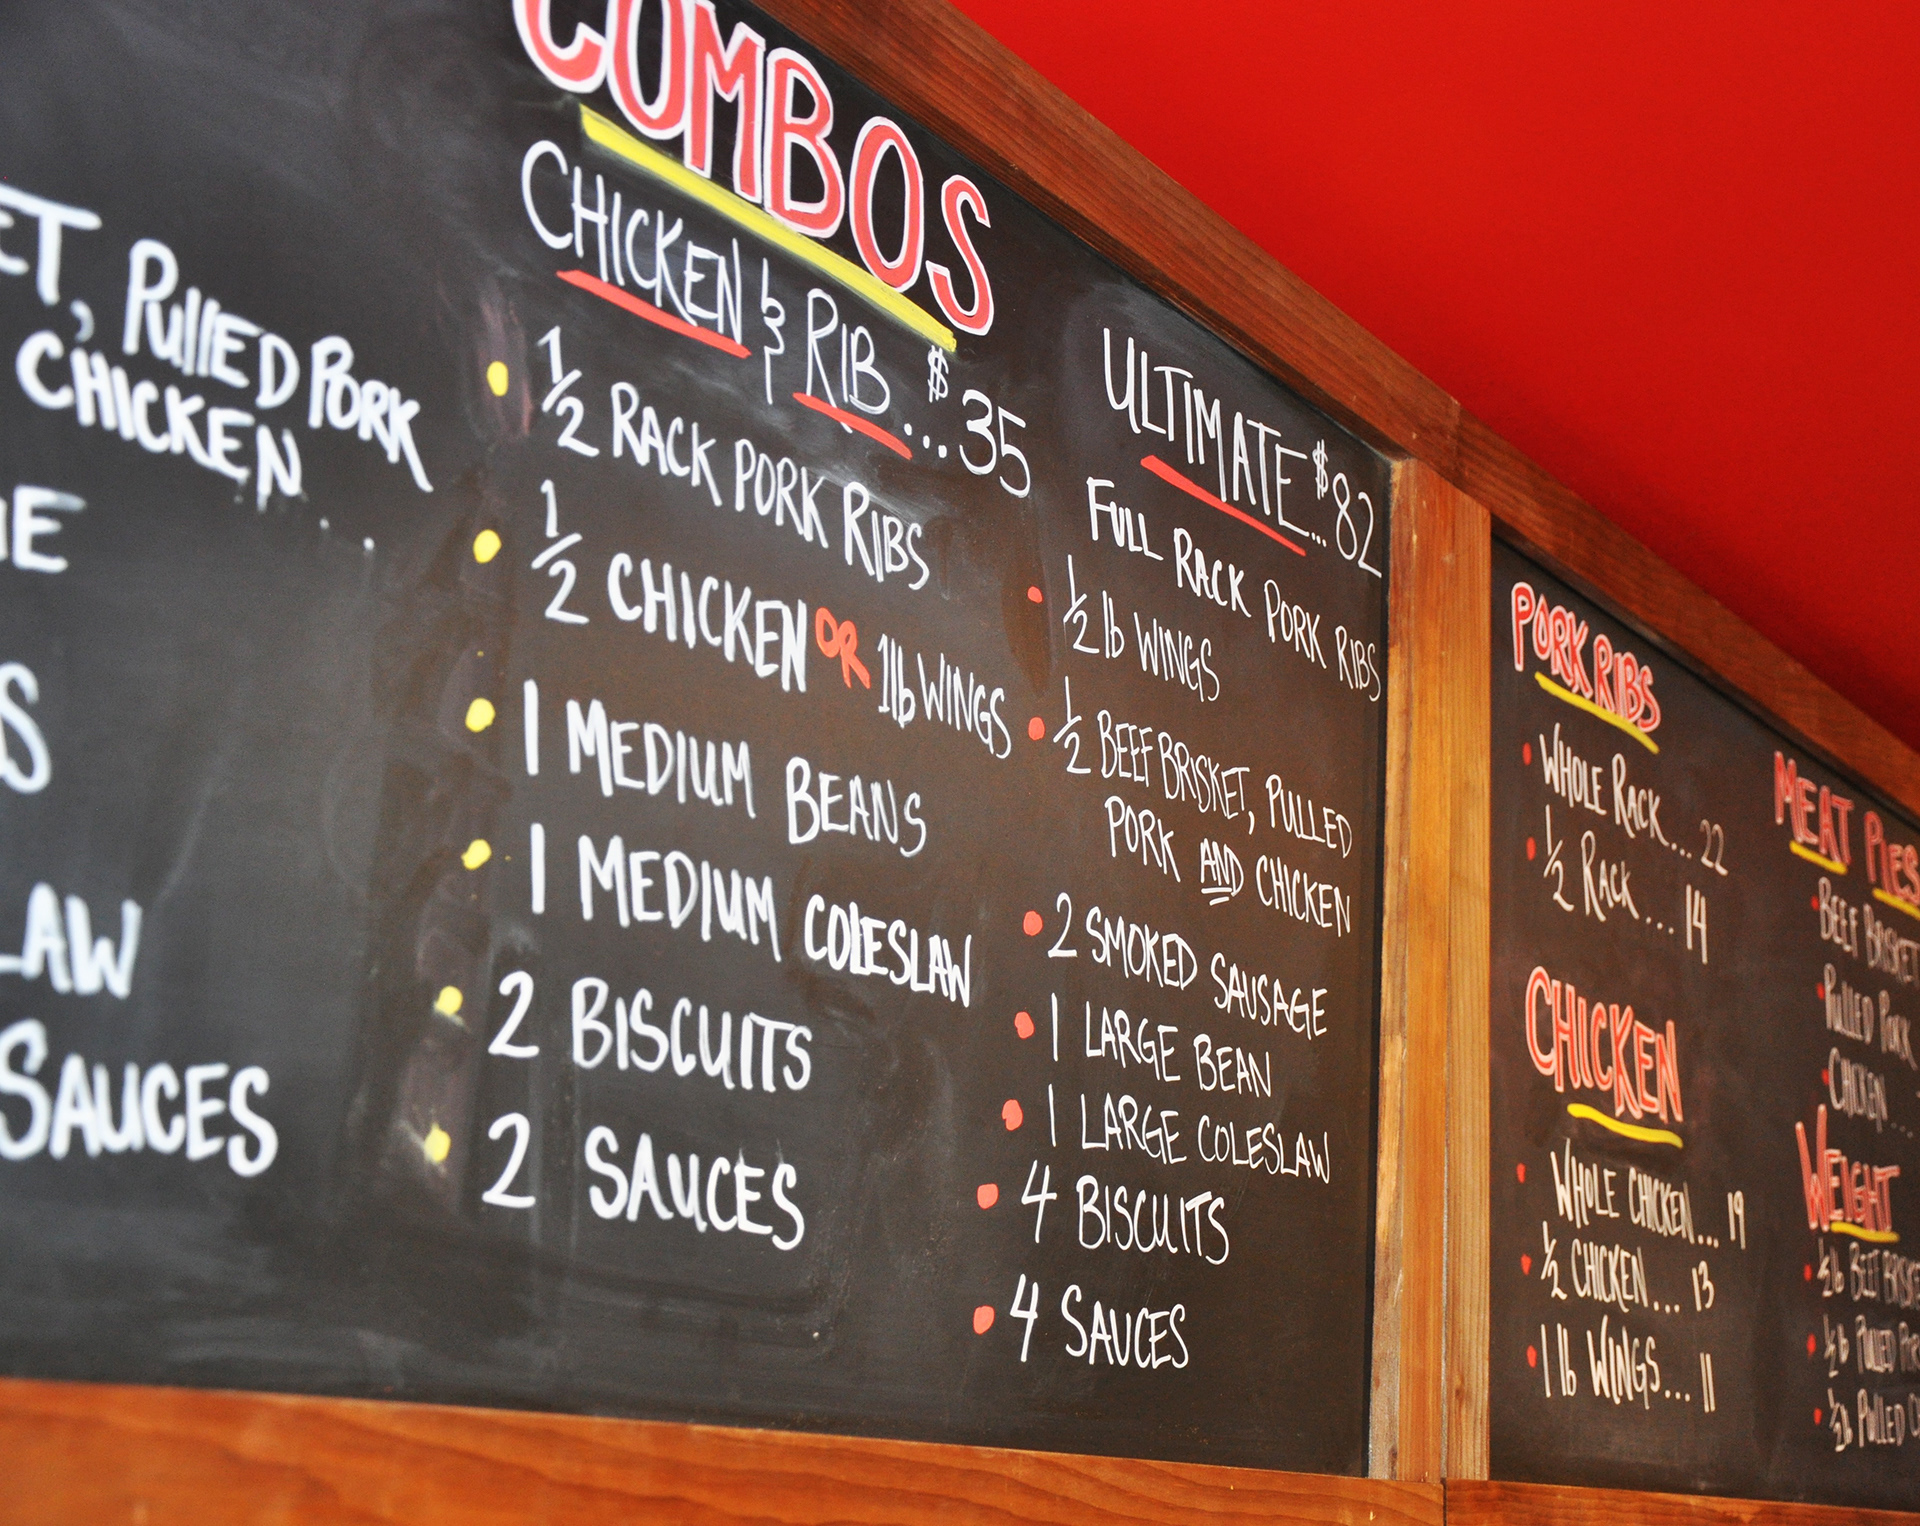 , PULLED PORK
CHICKEN
SAUCES
COMBOS
CHICKEN & RIB... $35
1/2 RACK PORK RIBS
1/2 CHICKEN OR 1lb WINGS
1 MEDIUM BEANS
1 MEDIUM COLESLAW
2 BISCUITS
2 SAUCES
ULTIMATE... $82
FULL RACK PORK RIBS
1/2 lb WINGS
1/2 BEEF BRISKET, PULLED
PORK AND CHICKEN
2 SMOKED SAUSAGE
1 LARGE BEAN
1 LARGE COLESLAW
4 BISCUITS
4 SAUCES
PORK RIBS
WHOLE RACK... 22
1/2 RACK.... 14
CHICKEN
WHOLE CHICKEN... 19
1/2 CHICKEN... 13
1 lb WINGS... 11
MEAT PIES
BEEF BRISKET
PULLED PORK
CHICKEN ....
WEIGHT
1/2 lb BEEF
1/2 lb PULLED
1/2 lb PULLED